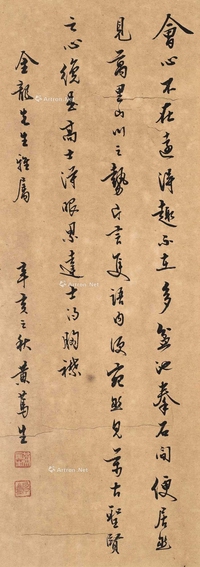 會心不在遠得趣不在多盆池拳石間便居然
見萬里山川之勢片言隻語內便宛然見萬古聖賢
之心纔是高士得眼界達士的胸襟
金龍先生雅屬 辛亥之秋 黃篤生